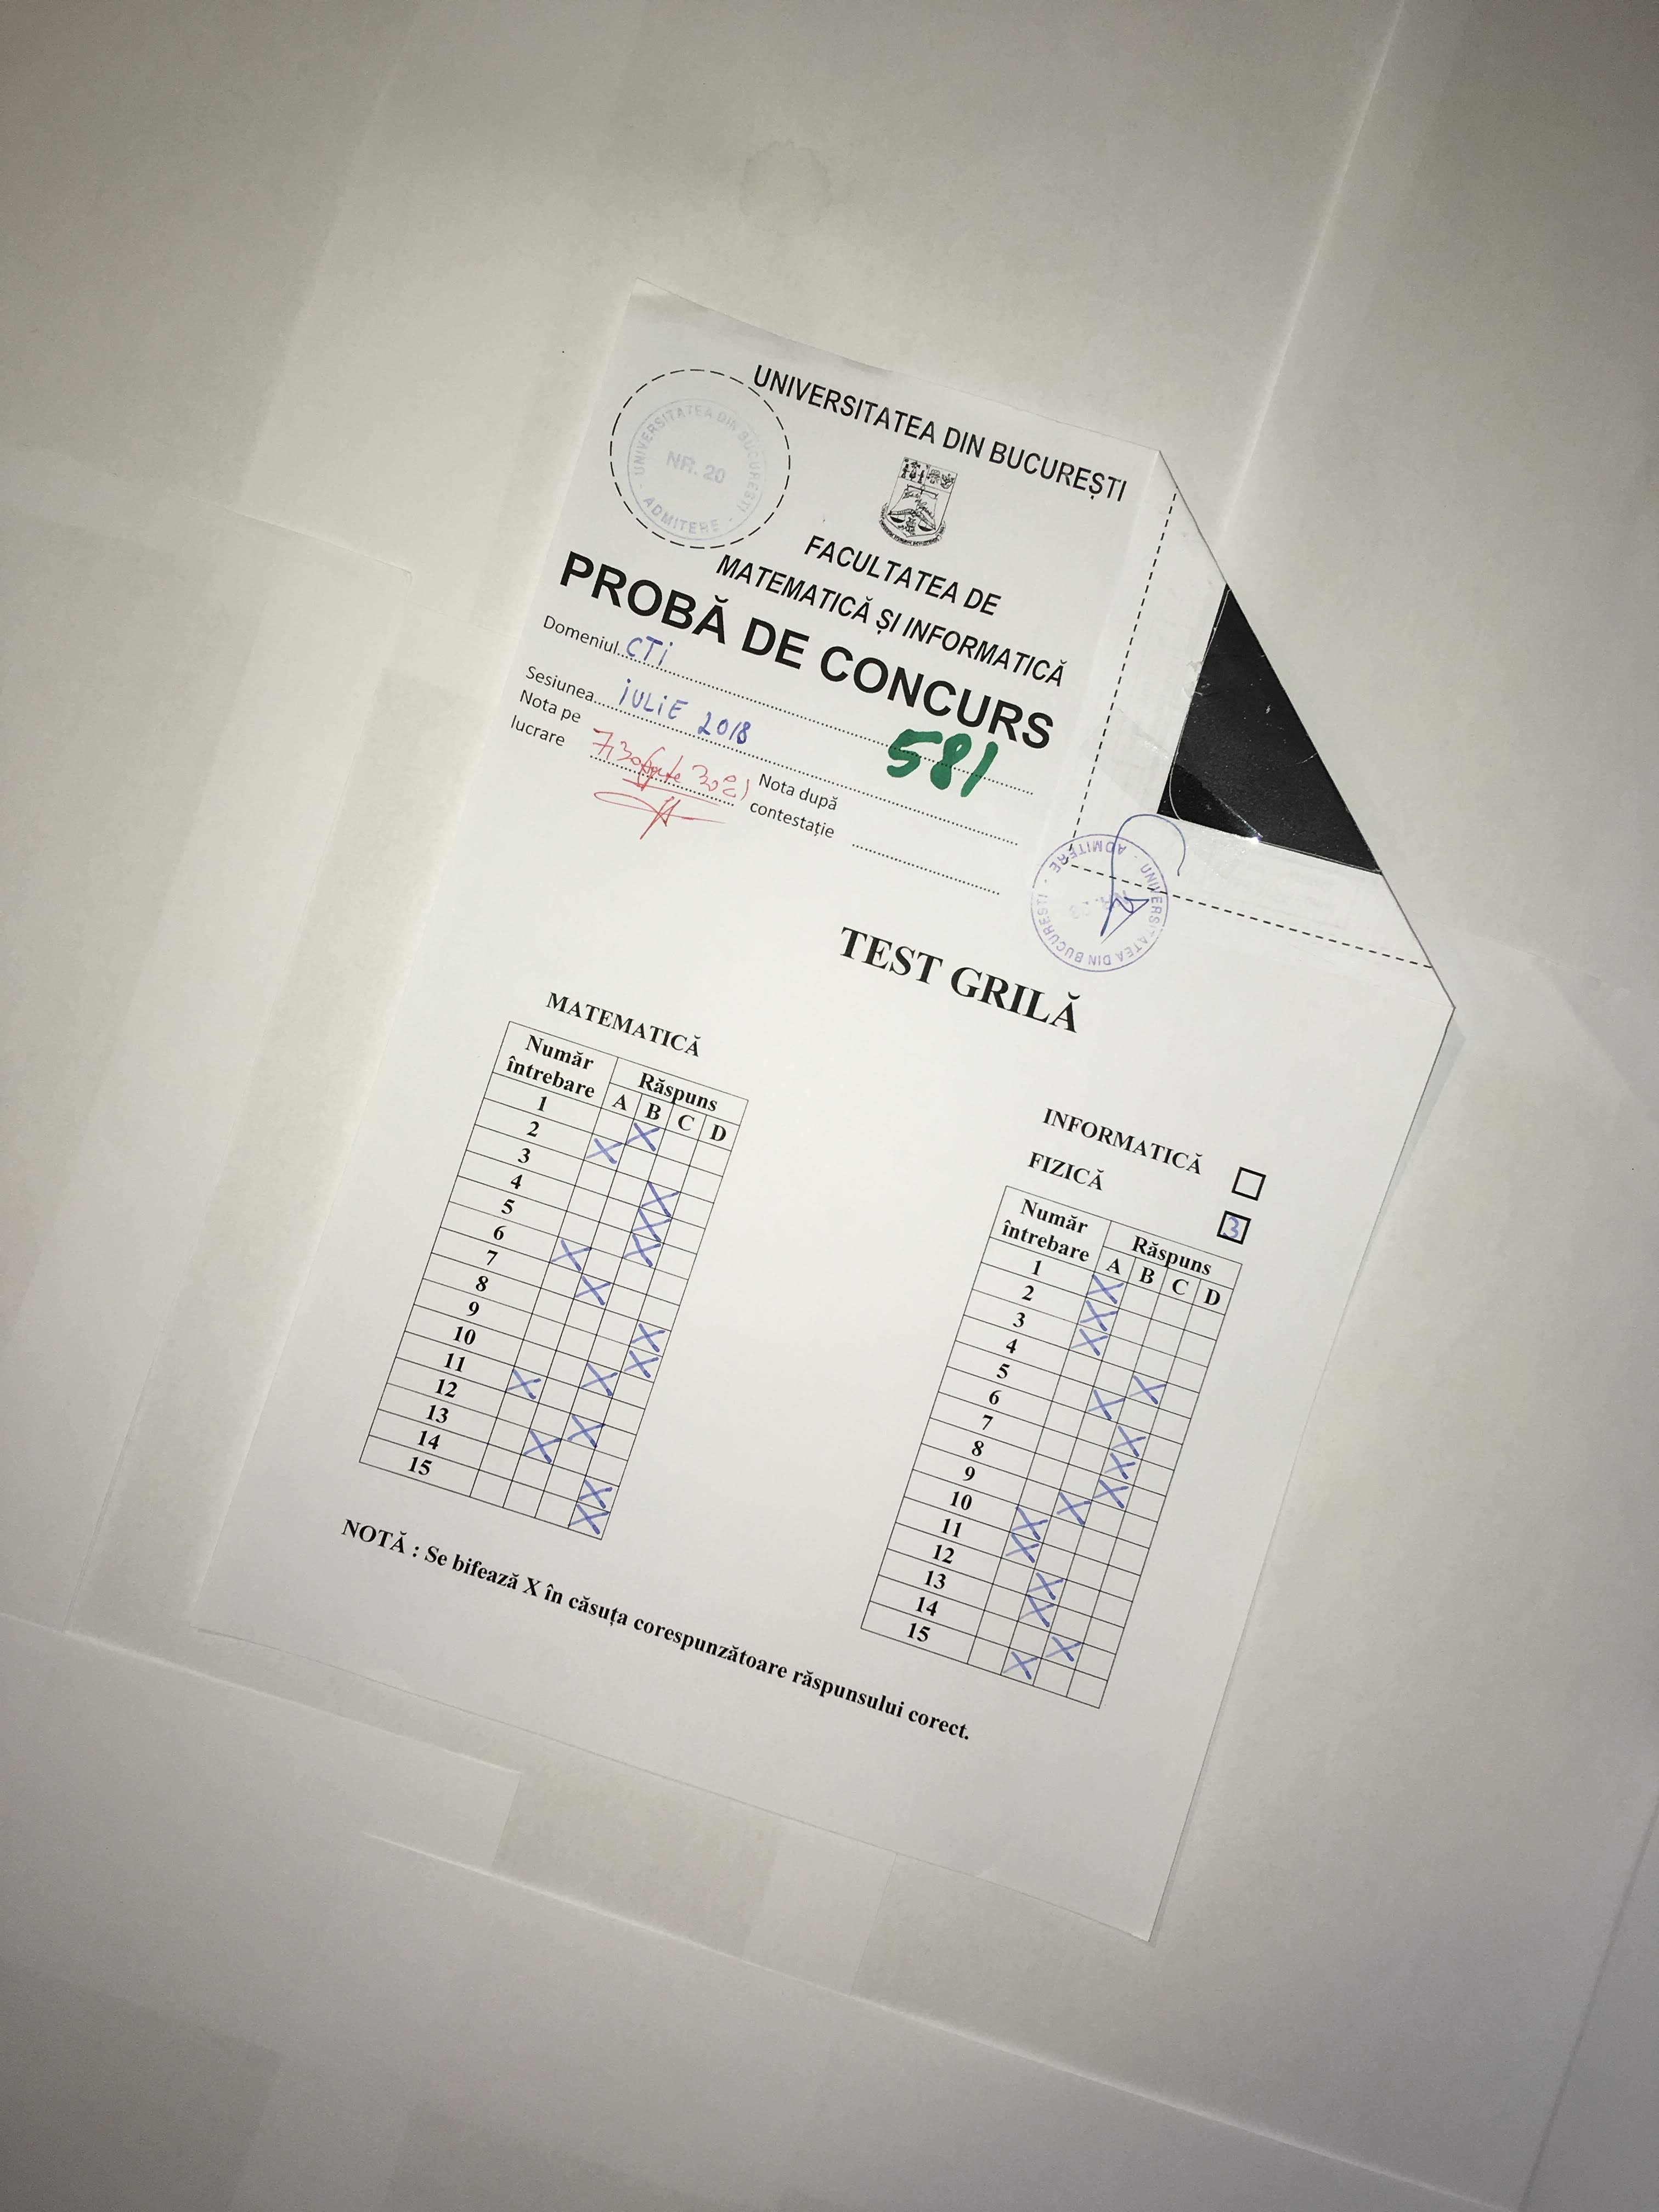 UNIVERSITATEA DIN BUCUREȘTI
· UNIVERSITATEA DIN BUCUREȘTI ·
NR. 20
ADMITERE
FACULTATEA DE
MATEMATICĂ ȘI INFORMATICĂ
PROBĂ DE CONCURS
Domeniul CTi
Sesiunea iULiE 2018
581
Nota pe
lucrare 7,30
Nota după
contestație
UNIVERSITATEA DIN BUCURESTI · ADMITERE ·
TEST GRILĂ
MATEMATICĂ
Număr
întrebare
Răspuns
A B C D
1 X
2 X
3 X
4 X
5 X
6 X
7 X
8 X
9 X
10 X
11 X
12 X
13 X
14 X
15 X
INFORMATICĂ
FIZICĂ 3
Număr
întrebare
Răspuns
A B C D
1 X
2 X
3 X
4 X
5 X
6 X
7 X
8 X
9 X
10 X
11 X
12 X
13 X
14 X
15 X
NOTĂ : Se bifează X în căsuța corespunzătoare răspunsului corect.